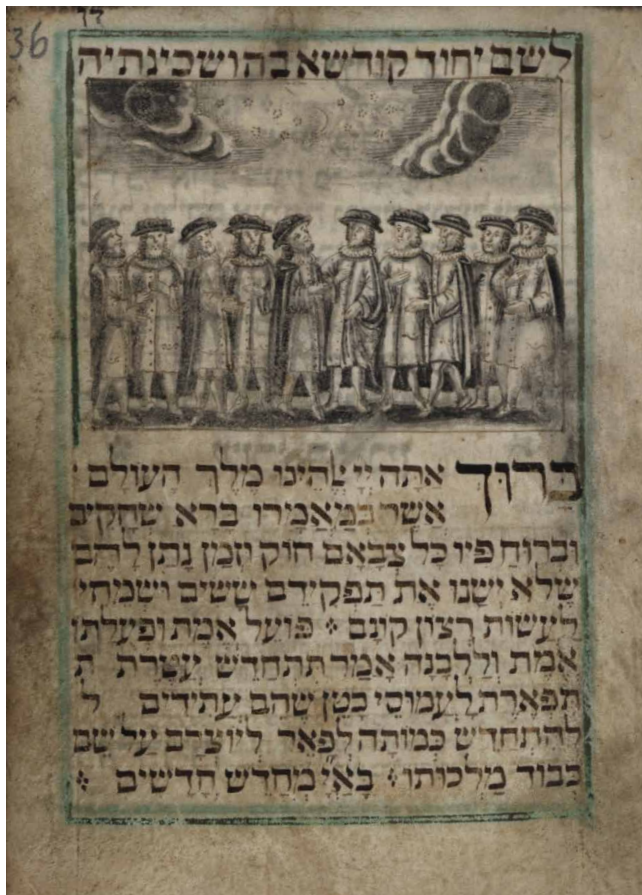 דך
36
לשם יחוד קודשא בה ושכינתיה
בָּרוּךְ אַתָּה יְיָ אֱלֹהֵינוּ מֶלֶךְ הָעוֹלָם
אֲשֶׁר בְּמַאֲמָרוֹ בָּרָא שְׁחָקִים
וּבְרוּחַ פִּיו כָּל צְבָאָם חוֹק וּזְמַן נָתַן לָהֶם
שֶׁלֹא יְשַׁנוּ אֶת תַּפְקִידָם שָׂשִׂים וּשְׂמֵחִי
לַעֲשׂוֹת רְצוֹן קוֹנָם ׃ פּוֹעֵל אֱמֶת וּפְעֻלָּתוֹ
אֱמֶת וְלַלְּבָנָה אָמַר תִּתְחַדֵּשׁ עֲטֶרֶת ת
תִּפְאֶרֶת לַעֲמוּסֵי בָטֶן שֶׁהֵם עֲתִידִים ל
לְהִתְחַדֵּשׁ כְּמוֹתָהּ לְפָאֵר לְיוֹצְרָם עַל שֵׁם
כְּבוֹד מַלְכוּתוֹ ׃ בָּאַ״יָ מְחַדֵּשׁ חֳדָשִׁים ׃